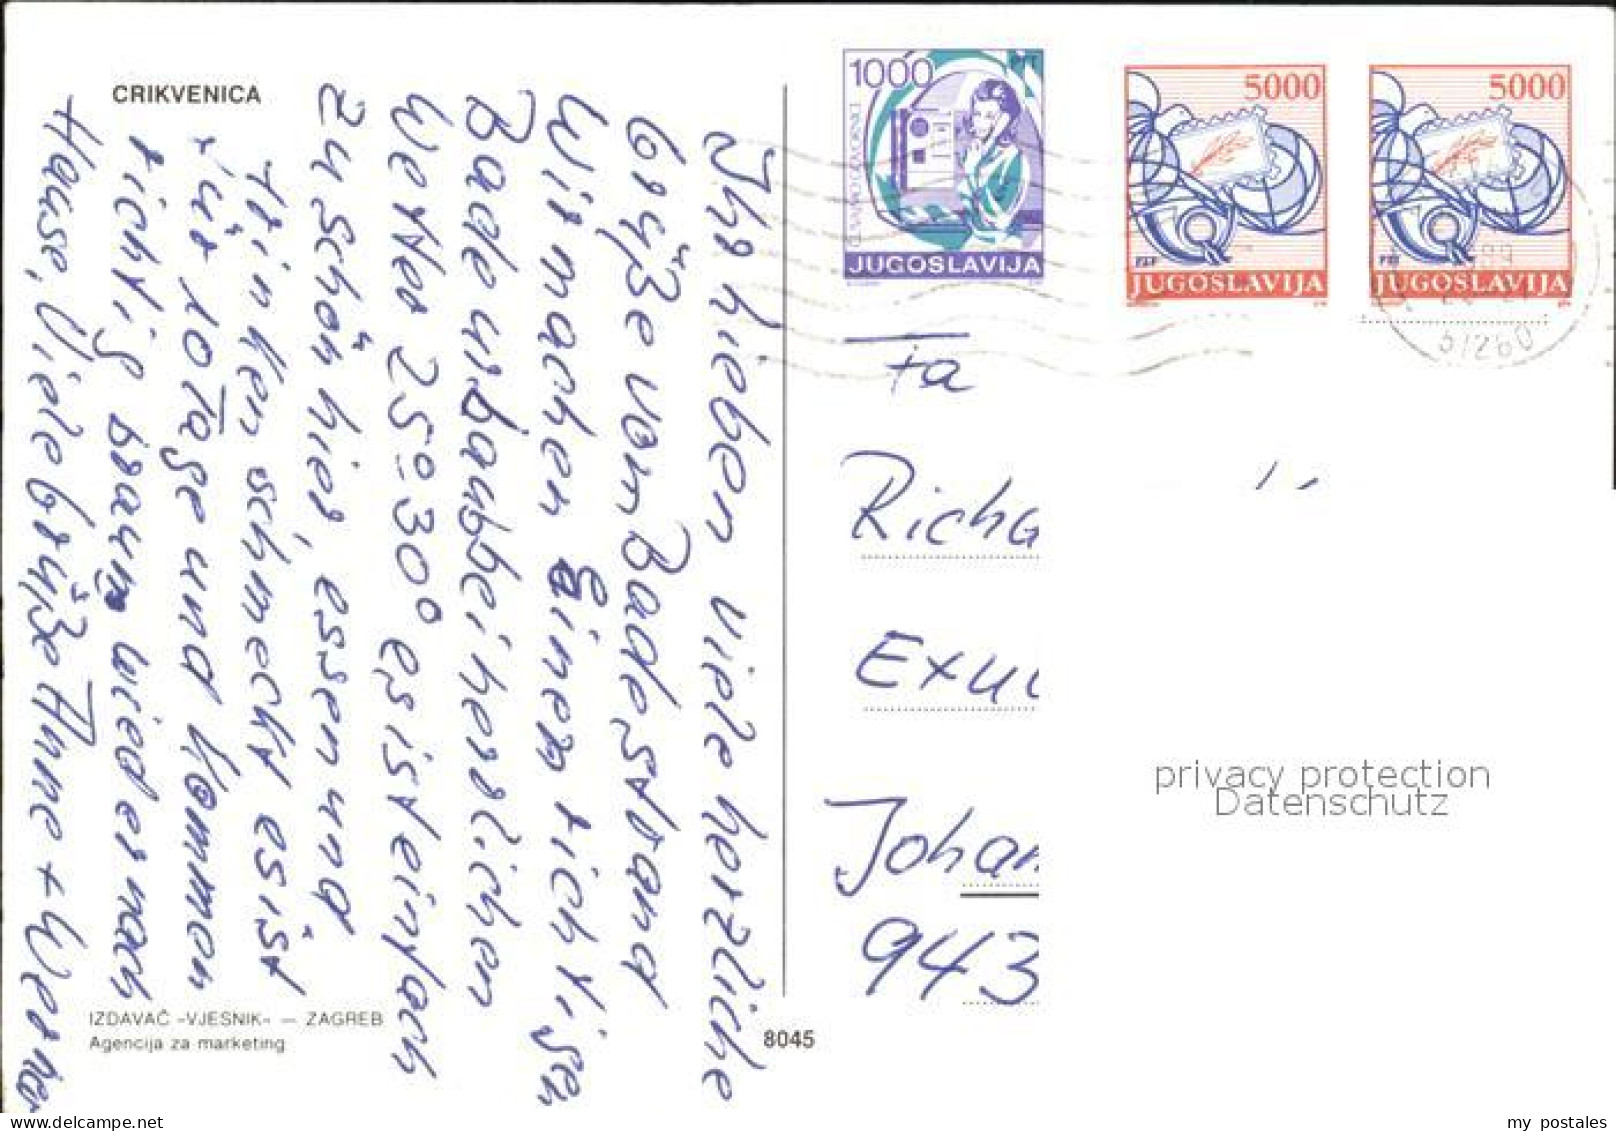 CRIKVENICA
Ihr Lieben viele herzliche
Grüße vom Badestrand
Wir machen Einen richtigen
Badeurlaub bei herrlichen
Wetter 25°-30° es ist einfach
zu schön hier, essen und
trinken schmeckt es ist
nur 10 Tage und kommen
richtig braun wieder nach
Hause, Viele Grüße Anne + Werner
IZDAVAČ «VJESNIK» — ZAGREB
Agencija za marketing
8045
1000
PTT
JUGOSLAVIJA
5000
PTT
JUGOSLAVIJA
5000
PTT
JUGOSLAVIJA
51260
Fa
Richa
Exu
Johan
943
privacy protection
Datenschutz
my postales